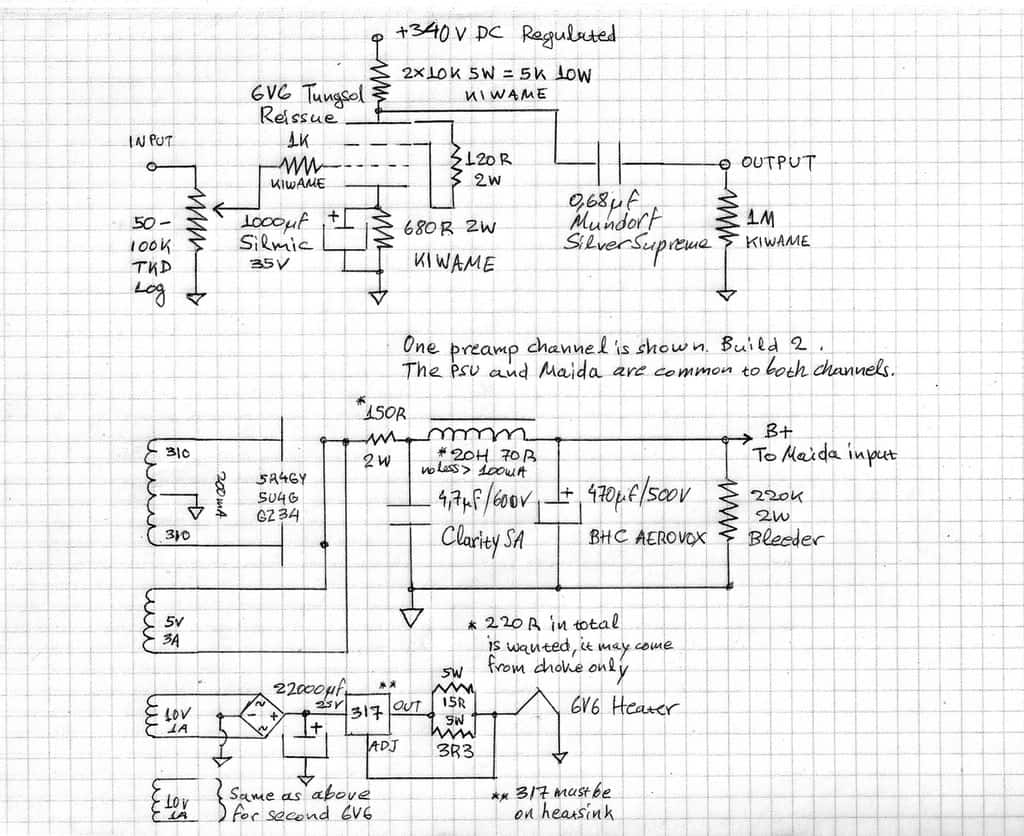 +340V DC Regulated
2x10K 5W = 5K 10W
KIWAME
6V6 Tungsol
Reissue
INPUT
1K
KIWAME
120R
2W
OUTPUT
50-
100K
TKD
Log
1000µf
Silmic
35V
+
680R 2W
KIWAME
0,68µf
Mundorf
SilverSupreme
1M
KIWAME
One preamp channel is shown. Build 2.
The PSU and Maida are common to both channels.
*150R
2W
310
200mA
310
5R4GY
5U4G
GZ34
*20H 70R
no less > 100mA
4,7µf/600V
Clarity SA
+
470µf/500V
BHC AEROVOX
B+
To Maida input
220K
2W
Bleeder
5V
3A
* 220R in total
is wanted, it may come
from choke only
10V
1A
~
- +
~
22000µf
25V
+
**
317
OUT
ADJ
5W
15R
5W
3R3
6V6 Heater
10V
1A
Same as above
for second 6V6
** 317 must be
on heatsink